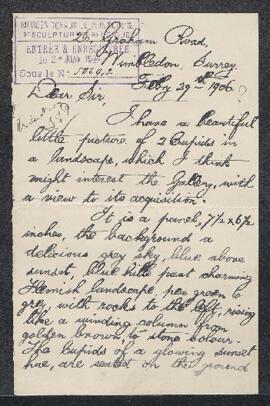 MUSÉES ROYAUX DE PEINTURE
ET DE SCULPTURE
ENTRÉ & ENREGISTRÉ
le
Sous le No
26, Graham Road,
Wimbledon, Surrey
Feby 29th 1906
Dear Sir,
I have a beautiful
little picture of 2 Cupids in
a landscape, which I think
might interest the Gallery, with
a view to its acquisition.
It is a panel, 7½ x 6½
inches, the background a
delicious grey sky, blue above
sunset, blue hills past charming
Flemish landscape, green to
grey, with rocks to the left, rising
like a winding column from
golden brown, to stone colour.
The Cupids of a glowing sunset
hue, are seated on the ground